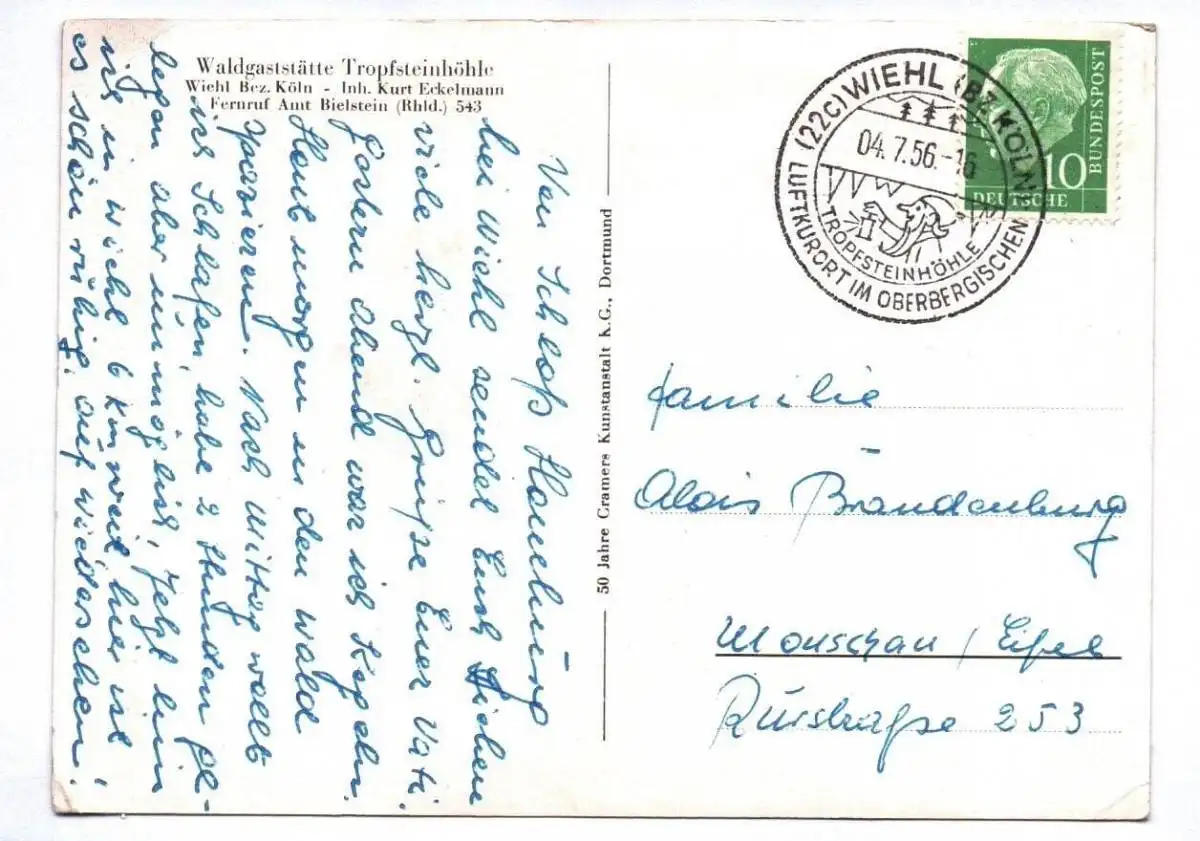 Waldgaststätte Tropfsteinhöhle
Wiehl Bez. Köln - Inh. Kurt Eckelmann
Fernruf Amt Bielstein (Rhld.) 543
Von Schloß Homburg
bei Wiehl sendet Euch Lieben
viele herzl. Grüße Euer Vati.
Gestern abend war ich Kegeln.
Heut morgen in den Wald
spazieren. Nach Mittag wollt
ich Schlafen, habe 2 Stunden ge-
legen aber unmöglich, Jetzt bin
ich in Wiehl 6 km weit, hier ist
es schön ruhig, auf Wiedersehen!
50 Jahre Cramers Kunstanstalt K.G., Dortmund
(22c) WIEHL (BZ. KÖLN)
04.7.56.-16
TROPFSTEINHÖHLE
LUFTKURORT IM OBERBERGISCHEN
DEUTSCHE
BUNDESPOST
10
Familie
Alois Brandenburg
Monschau/Eifel
Rurstraße 253